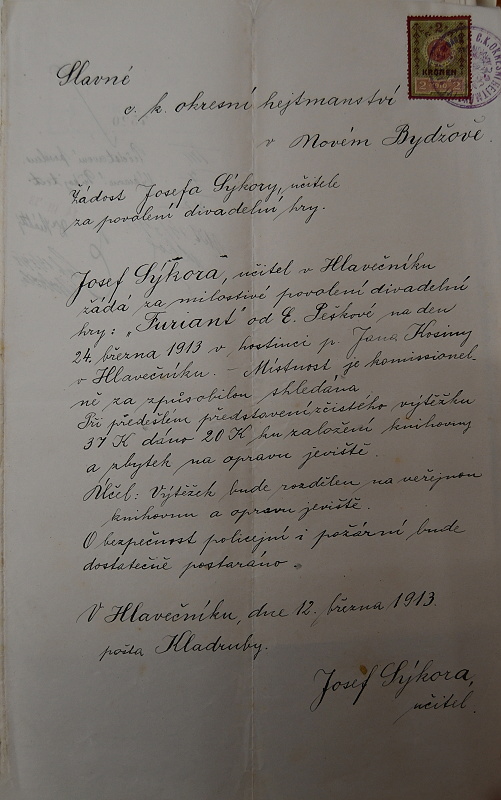 Slavné
c. k. okresní hejtmanství
v Novém Bydžově.
Žádost Josefa Sýkory, učitele
za povolení divadelní hry.
Josef Sýkora, učitel v Hlavečníku
žádá za milostivé povolení divadelní
hry: „Furiant" od E. Peškové na den
24. března 1913 v hostinci p. Jana Kosiny
v Hlavečníku. – Místnost je komissionel-
ně za způsobilou shledána.
Při předešlém představení z čistého výtěžku
37 K dáno 20 K ku založení knihovny
a zbytek na opravu jeviště.
Účel: Výtěžek bude rozdělen na veřejnou
knihovnu a opravu jeviště.
O bezpečnost policejní i požární bude
dostatečně postaráno.
V Hlavečníku, dne 12. března 1913.
pošta Kladruby.
Josef Sýkora,
učitel.
2
KRONEN
2 2
C.K. OKRES